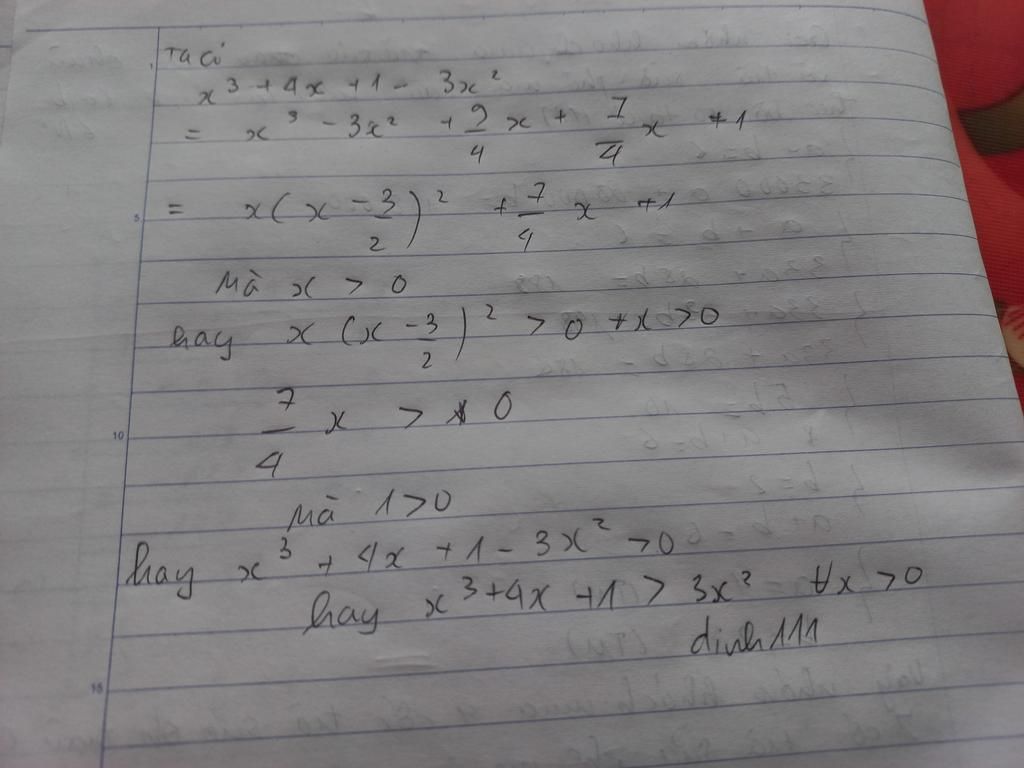 Ta có
x³ + 4x + 1 - 3x²
= x³ - 3x² + 9/4 x + 7/4 x + 1
5 = x(x - 3/2)² + 7/4 x + 1
Mà x > 0
hay x(x - 3/2)² > 0 ∀x > 0
7/4 x > 0
10
Mà 1 > 0
hay x³ + 4x + 1 - 3x² > 0
hay x³ + 4x + 1 > 3x² ∀x > 0
dinh111
15